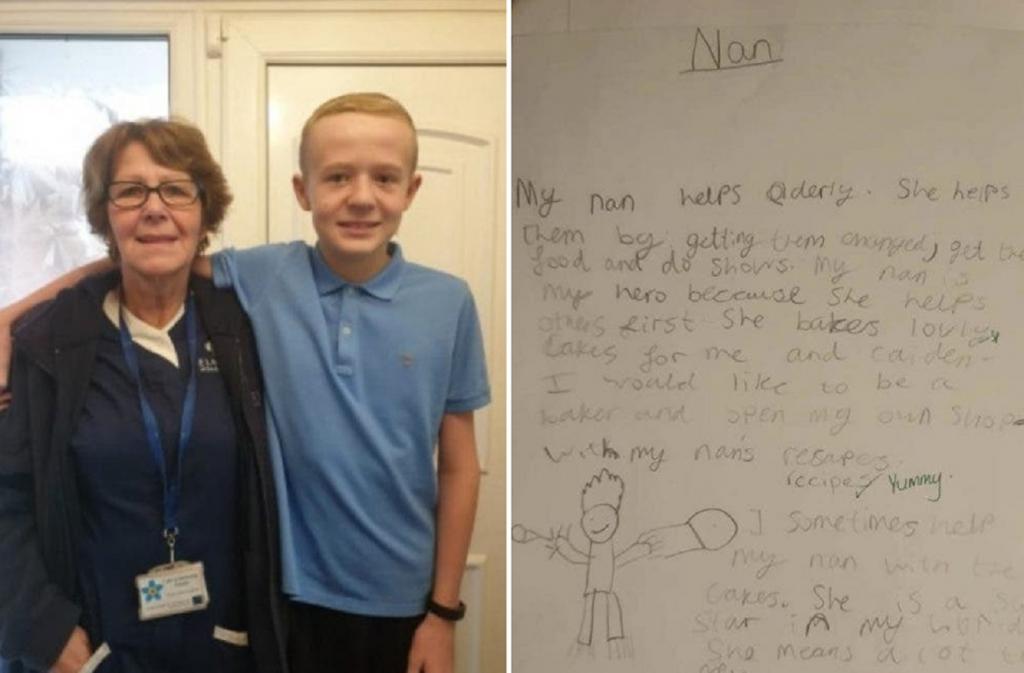 Nan
My nan helps elderly. She helps
them by getting them changed, get the
food and do shows. My nan is
my hero because she helps
others first She bakes lovly
cakes for me and caiden.
I would like to be a
baker and open my own shop
with my nan's resapes.
recipes yummy.
I sometimes help
my nan with the
cakes. She is a
star in my
She means a lot